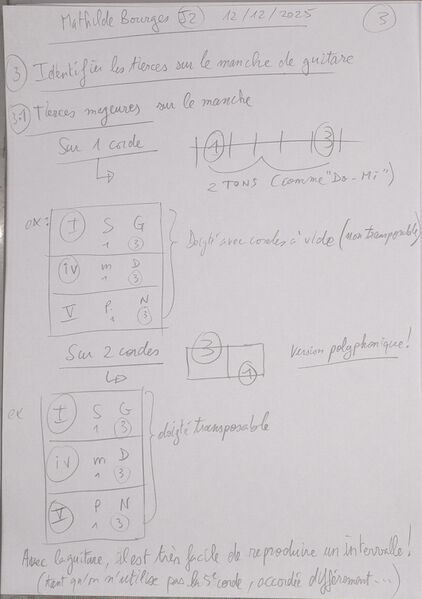 Mathilde Bourges J2 12/12/2025 3
3 Identifier les tierces sur le manche de guitare
3.1 Tierces majeures sur le manche
Sur 1 corde
1 3
2 TONS (comme "Do - Mi")
ex: I S G
1 3
iv m D
1 3
V P N
1 3
Doigté avec cordes à vide (non transposable)
Sur 2 cordes
3
1
Version polyphonique!
ex I S G
1 3
iv m D
1 3
V P N
1 3
doigté transposable
Avec la guitare, il est très facile de reproduire un intervalle!
(tant qu'on n'utilise pas la 5e corde, accordée différemment...)